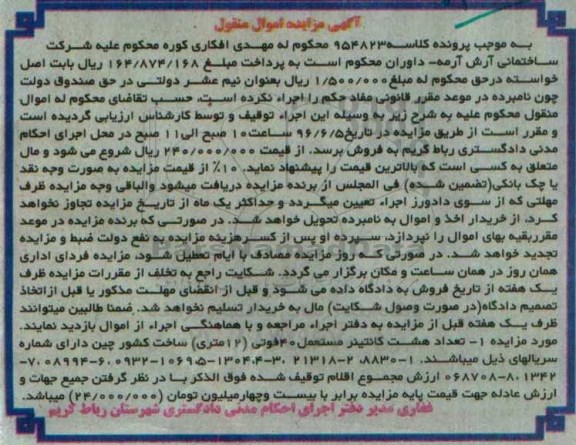 آگهی مزایده اموال منقول
به موجب پرونده کلاسه ۹۵۴۸۲۳ محکوم له مهدی افکاری کوره محکوم علیه شرکت
ساختمانی آرش آرمه- داوران محکوم است به پرداخت مبلغ ۱۶۴/۸۷۴/۱۶۸ ریال بابت اصل
خواسته درحق محکوم له مبلغ ۱/۵۰۰/۰۰۰ ریال بعنوان نیم عشر دولتی در حق صندوق دولت
چون نامبرده در موعد مقرر قانونی مفاد حکم را اجراء نکرده است، حسب تقاضای محکوم له اموال
منقول محکوم علیه به شرح زیر به وسیله این اجراء توقیف و توسط کارشناس ارزیابی گردیده است
و مقرر است از طریق مزایده در تاریخ ۹۶/۶/۵ ساعت ۱۰ صبح الی ۱۱ صبح در محل اجرای احکام
مدنی دادگستری رباط کریم به فروش برسد. از قیمت ۲۴۰/۰۰۰/۰۰۰ ریال شروع می شود و مال
متعلق به کسی است که بالاترین قیمت را پیشنهاد نماید. ۱۰٪ از قیمت مزایده به صورت وجه نقد
یا چک بانکی(تضمین شده) فی المجلس از برنده مزایده دریافت میشود والباقی وجه مزایده ظرف
مهلتی که از سوی دادورز اجراء تعیین میگردد و حداکثر یک ماه از تاریخ مزایده تجاوز نخواهد
کرد، از خریدار اخذ و اموال به نامبرده تحویل خواهد شد. در صورتی که برنده مزایده در موعد
مقرربقیه بهای اموال را نپردازد، سپرده او پس از کسرهزینه مزایده به نفع دولت ضبط و مزایده
تجدید خواهد شد. در صورتی که روز مزایده مصادف با ایام تعطیل شود، مزایده فردای اداری
همان روز در همان ساعت و مکان برگزار می گردد. شکایت راجع به تخلف از مقررات مزایده ظرف
یک هفته از تاریخ فروش به دادگاه داده می شود و قبل از انقضای مهلت مذکور یا قبل ازاتخاذ
تصمیم دادگاه(در صورت وصول شکایت) مال به خریدار تسلیم نخواهد شد. ضمنا طالبین میتوانند
ظرف یک هفته قبل از مزایده به دفتر اجراء مراجعه و با هماهنگی اجراء از اموال بازدید نمایند.
مورد مزایده ۱- تعداد هشت کانتینر مستعمل ۴۰فوتی (۱۲متری) ساخت کشور چین دارای شماره
سریالهای ذیل میباشند. ۱-۸۸۳۰، ۲-۲۱۳۱۸، ۳-۱۳۰۴۴، ۵-۱۰۶۹، ۶-۰۹۳۲، ۷-۰۸۹۹۴،
۸-۰۶۸۷۰۸، ۱۳۴۲ ارزش مجموع اقلام توقیف شده فوق الذکر با در نظر گرفتن جمیع جهات و
ارزش عادله جهت قیمت پایه مزایده برابر با بیست وچهارمیلیون تومان (۲۴/۰۰۰/۰۰۰) میباشد.
غفاری مدیر دفتر اجرای احکام مدنی دادگستری شهرستان رباط کریم